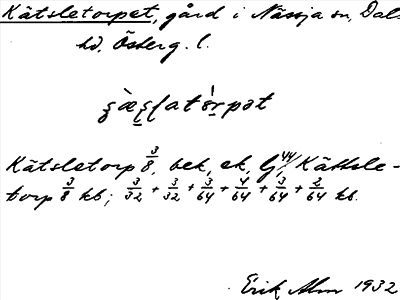 Kätsletorpet, gård i Nässja sn, Dals
hd, Österg. l.
Kätsletorp 3/8, bek, ek, Lj 44, Kättsle-
torp 3/8 kb; 3/32 + 3/32 + 3/64 + 4/64 + 3/64 + 2/64 kb.
Erik Alm 1932